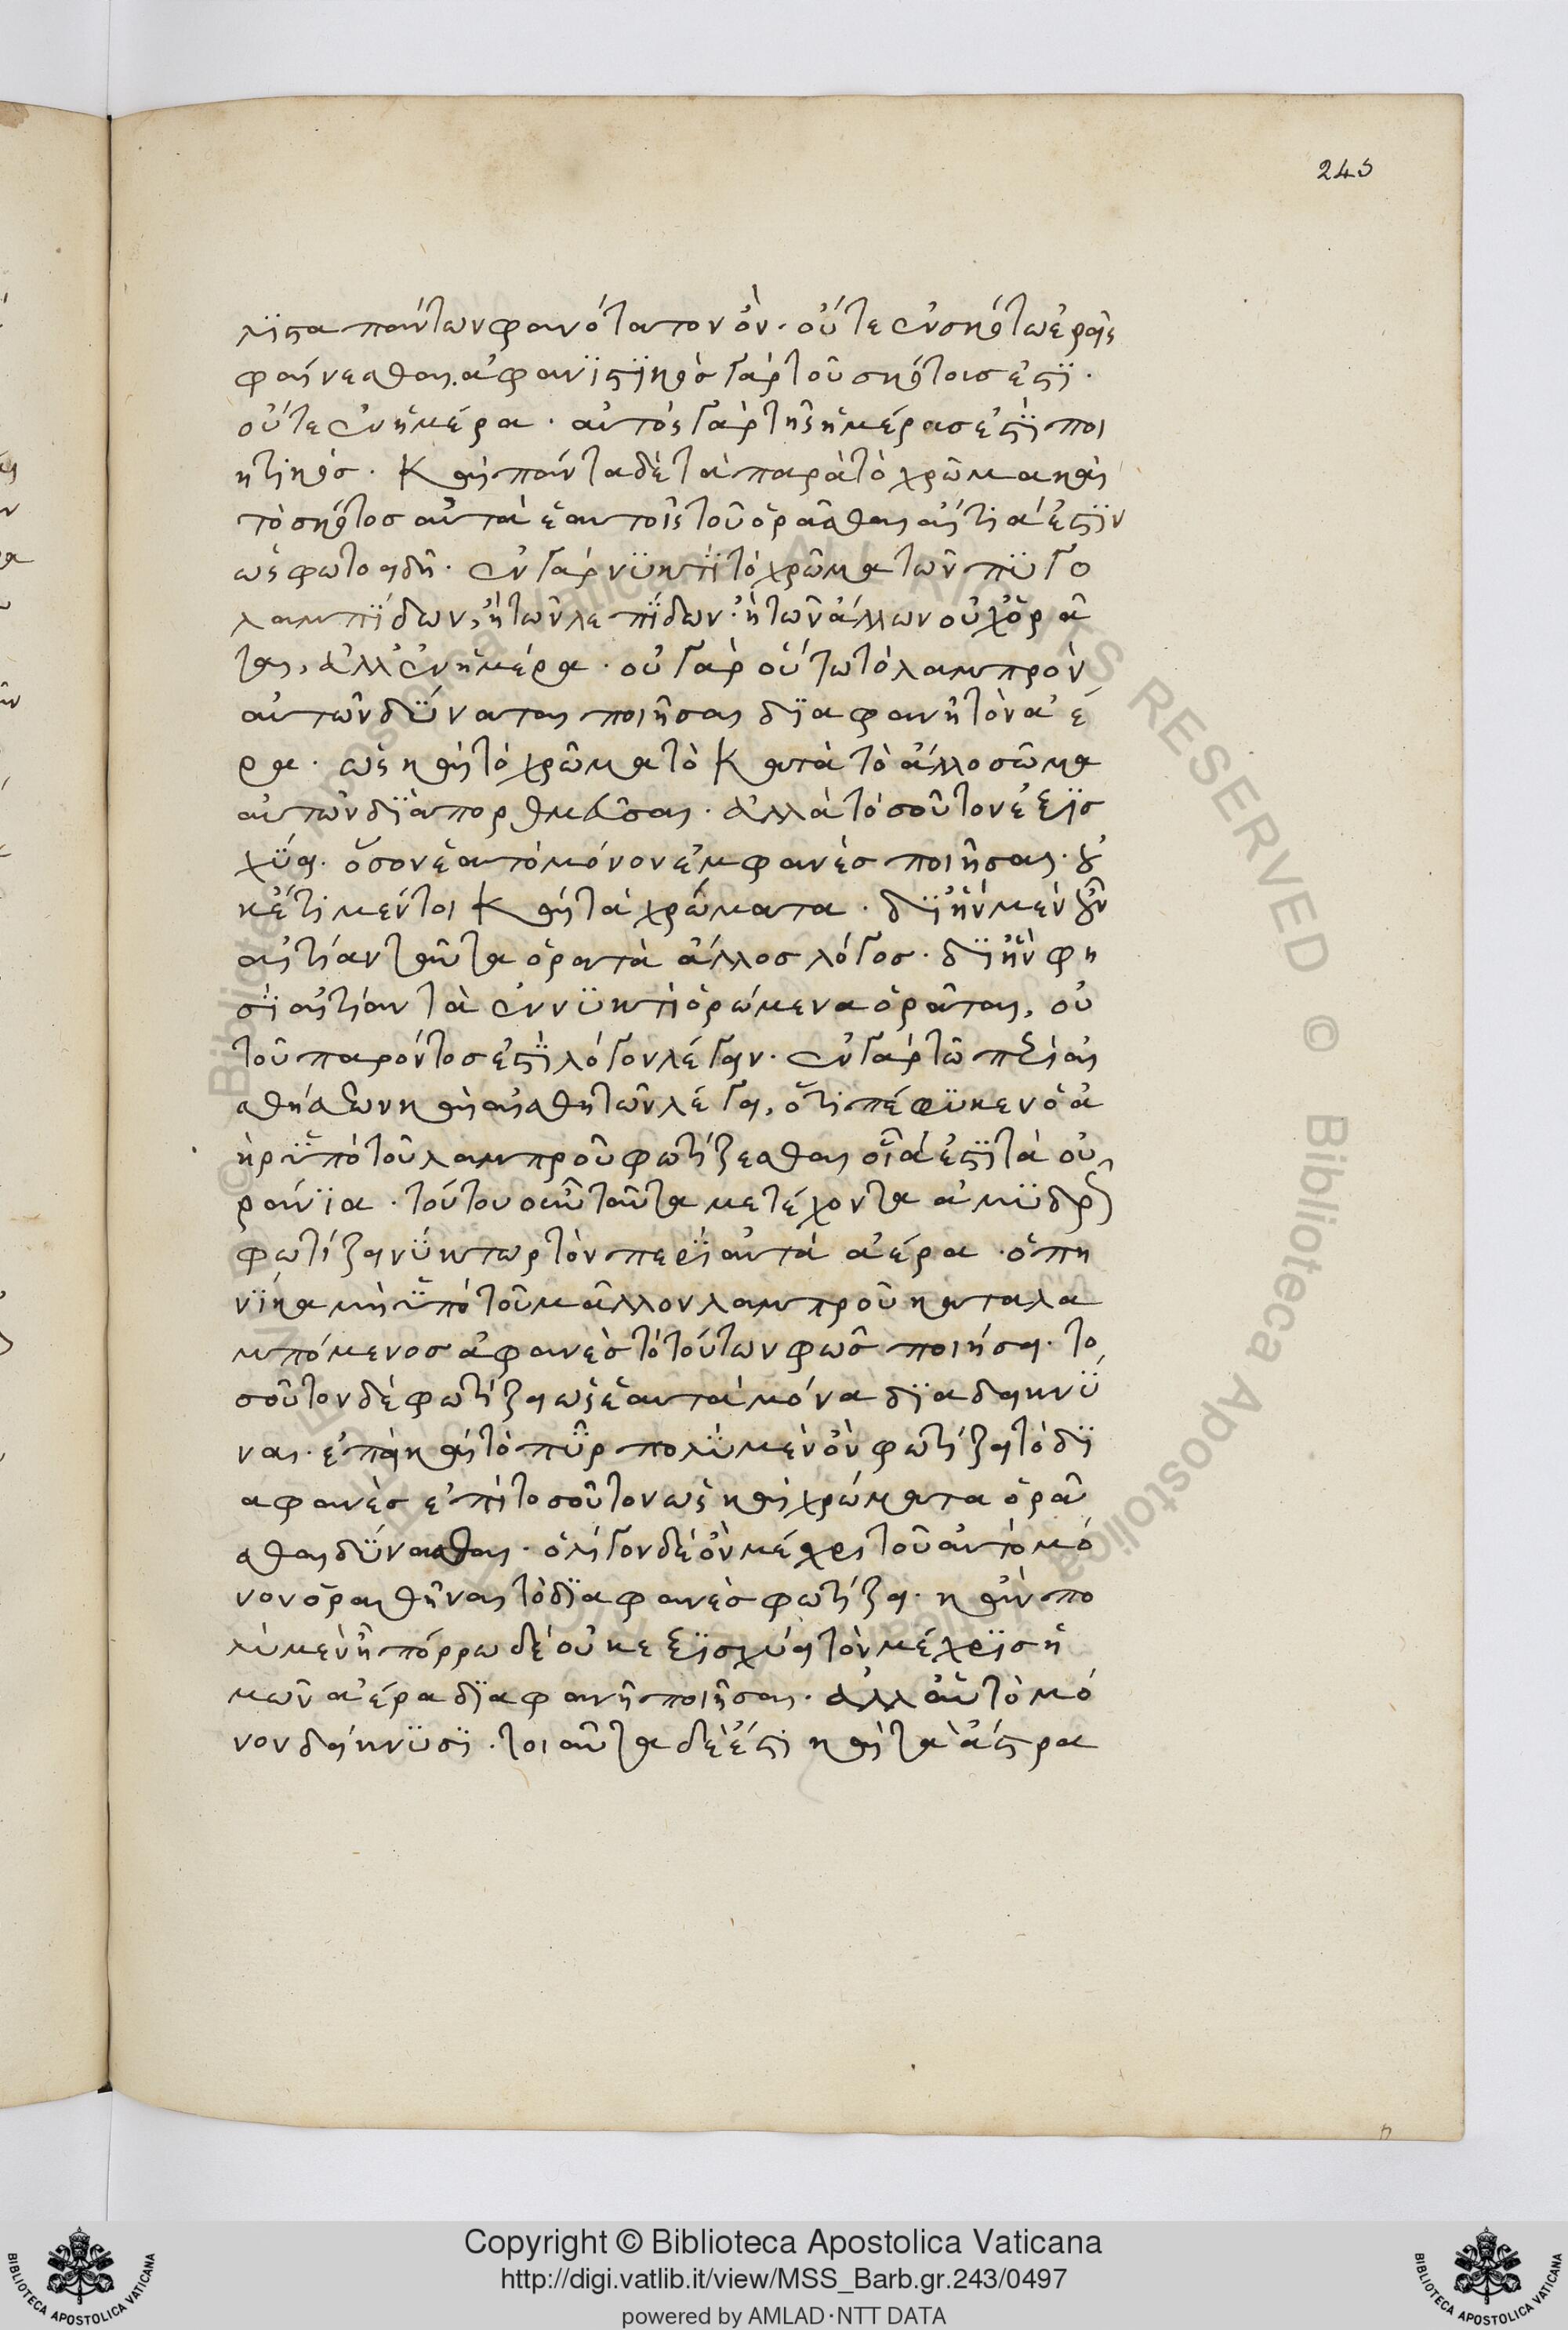 243
λϊστα πάντων φανότατον ὄν· οὔτε ἐν σκότω ἐρεῖς
φαίνεσθαι. ἀφανϊστϊκὸσ γὰρ τοῦ σκότοισ ἐστϊ·
οὔτε ἐν ἡμέρα· αὐτὸς γὰρ τῆς ἡμέρασ ἐστϊ ποι
ητικόσ· Καὶ πάντα δὲ τὰ παρὰ τὸ χρῶμα καὶ
τὸ σκότοσ αὐτὰ ἑαυτοῖς τοῦ ὁρᾶσθαι αἴτιά ἐστϊν
ὡς φωτοειδῆ· ἐν γὰρ νϋκτὶ τὸ χρῶμα τῶν πϋγο
λαμπϊδων, ἢ τῶν λεπΐδων· ἢ τῶν ἄλλων οὐχ ὁρᾶ
ται, ἀλλ' ἐν ἡμέρα· οὐ γὰρ οὕτω τὸ λαμπρὸν
αὐτῶν δΰναται ποιῆσαι δϊαφανῆ τὸν ἀέ
ρα· ὡς καὶ τὸ χρῶμα τὸ Κατὰ τὸ ἄλλο σῶμα
αὐτῶν δϊαπορθμεῦσαι· ἀλλὰ τὸσοῦτον ἐξϊσ
χΰει· ὅσον ἑαυτὸ μόνον ἐμφανὲσ ποιῆσαι· οὐ
κέτι μέντοι Καὶ τὰ χρώματα· δϊ' ἣν μὲν οὖν
αἰτίαν ταῦτα ὁρατὰ ἄλλοσ λόγοσ· δϊ' ἣν φη
σϊ αἰτίαν τὰ ἐν νϋκτὶ ὁρώμενα ὁρᾶται, οὐ
τοῦ παρόντοσ ἐστϊ λόγου λέγειν· ἐν γὰρ τῶ περὶ αἰ
σθήσεων καὶ αἰσθητῶν λέγει, ὅτι πέφϋκεν ὁ ἀ
ὴρ ϋπὸ τοῦ λαμπροῦ φωτίζεσθαι οἷά ἐστϊ τὰ οὐ
ράνϊα· τούτου οὖν ταῦτα μετέχοντα ἀμϋδρῶς
φωτίζει νΰκτωρ τὸν περϊ αὐτὰ ἀέρα· ὁπη
νϊκα μὴ ϋπὸ τοῦ μᾶλλον λαμπροῦ καταλα
μπόμενοσ ἀφανὲσ τὸ τούτων φῶσ ποιήσει· το
σοῦτον δὲ φωτίζει ὡς ἑαυτὰ μόνα δϊαδεικνΰ
ναι· ἐπεὶ καὶ τὸ πῦρ πολὺ μὲν ὂν φωτίζει τὸ δϊ
αφανὲσ ἐπὶ τοσοῦτον ὡς καὶ χρώματα ὁρᾶ
σθαι δΰνασθαι· ὀλίγον δὲ ὂν μέχρι τοῦ αὐτὸ μό
νον ὁραθῆναι τὸ δϊαφανὲσ φωτίζει· κἂν πο
λὺ μὲν ᾖ πόρρω δὲ οὐκ ἐξϊσχύει τὸν μέχρϊσ ἡ
μῶν ἀέρα δϊαφανῆ ποιῆσαι· ἀλλ' αὑτὸ μό
νον δείκνϋσϊ· τοιαῦτα δὲ ἐστὶ καὶ τὰ ἄστρα
Copyright © Biblioteca Apostolica Vaticana
http://digi.vatlib.it/view/MSS_Barb.gr.243/0497
powered by AMLAD·NTT DATA